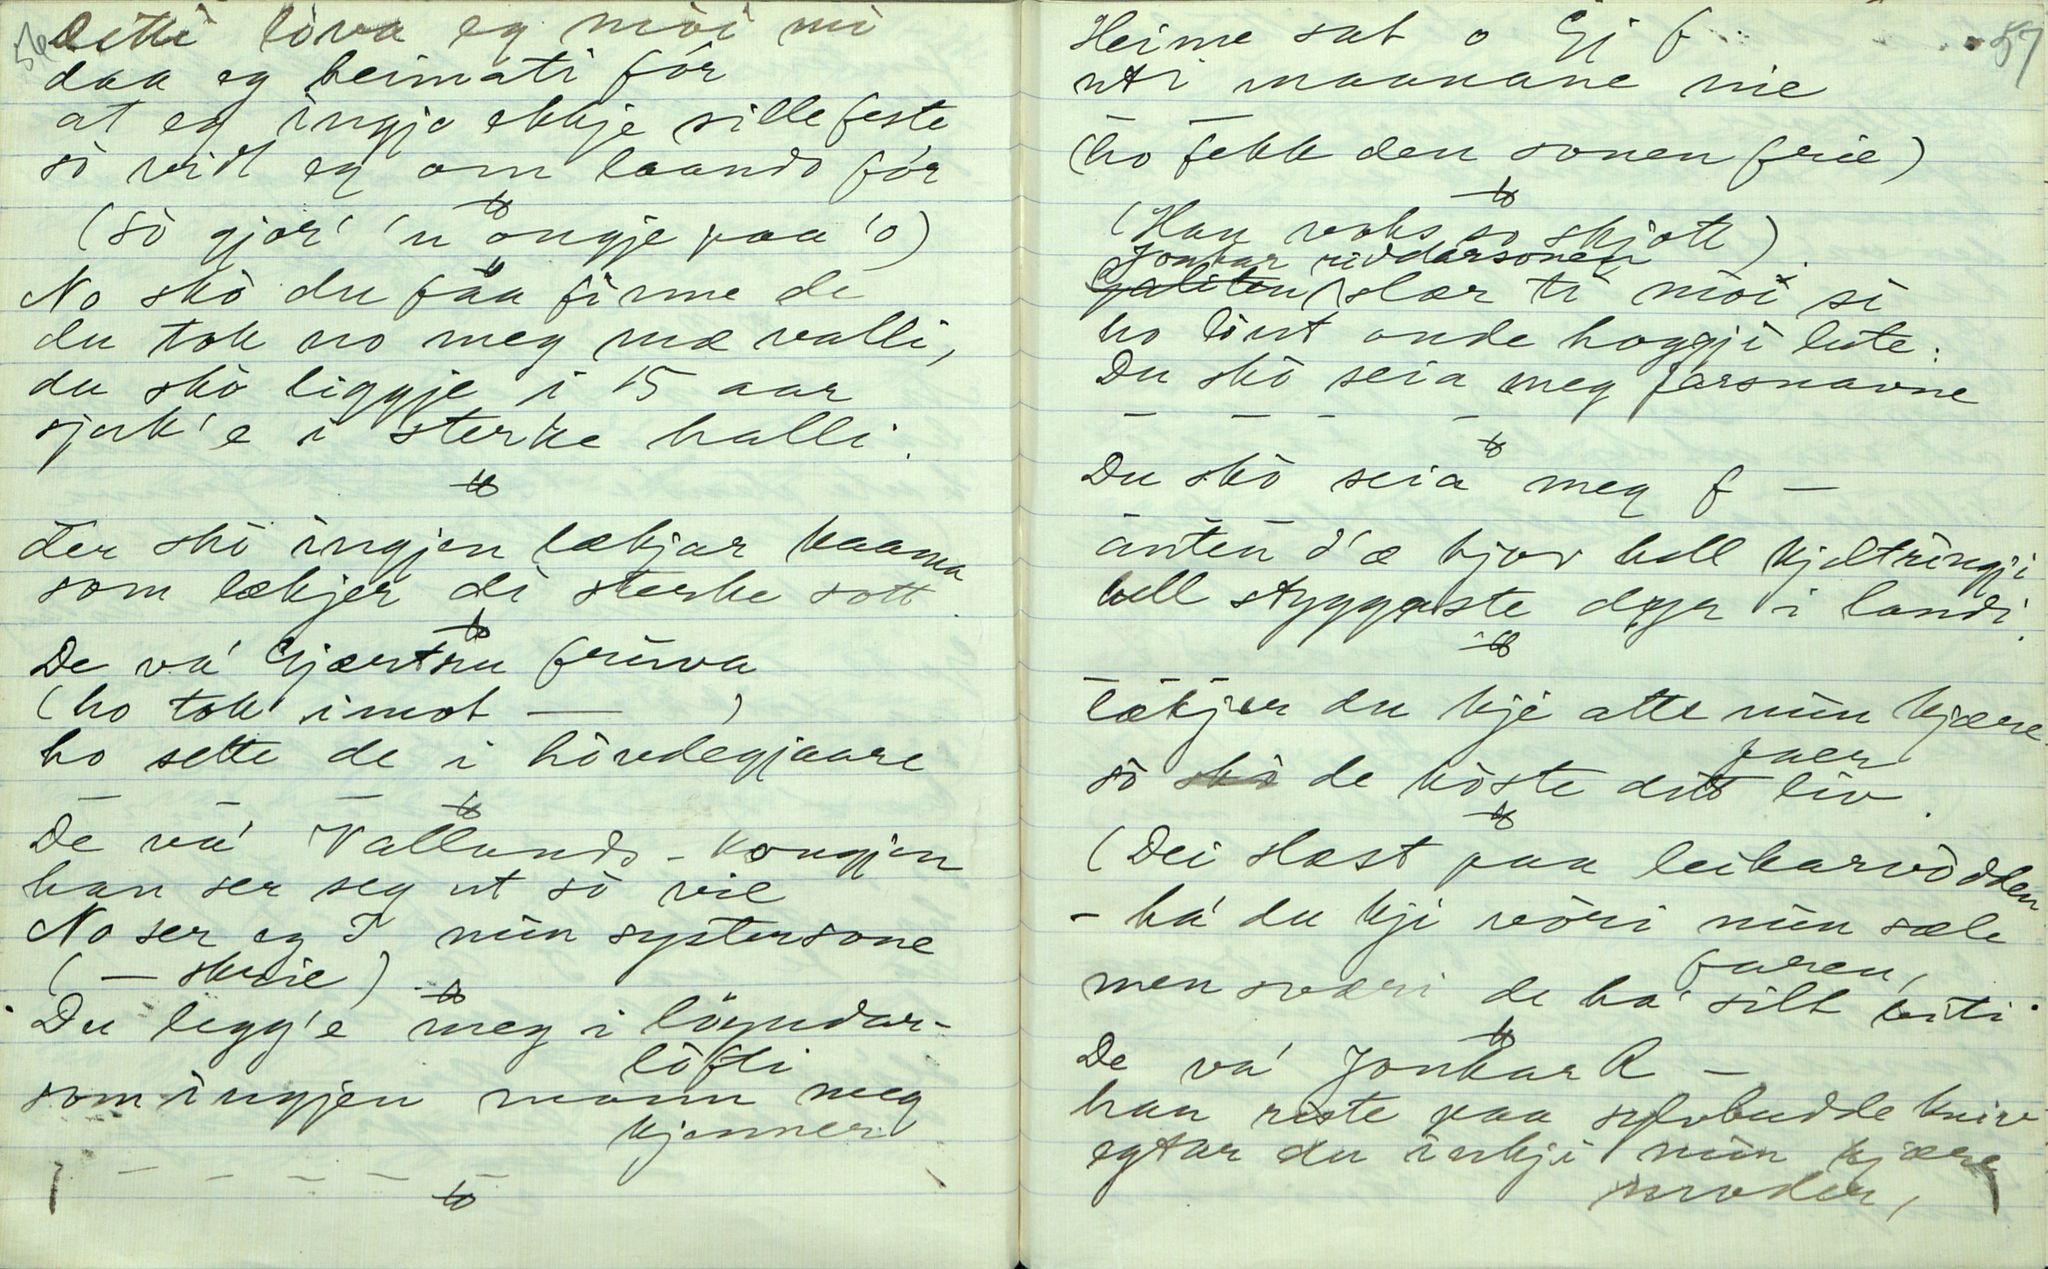 56
Litti lòva eg mòi mi
daa eg heimati fór
at eg ingje ekkje sille feste
sò vidt eg om laando fór
(sò gjor' 'n òngje paa 'o)
No skò du faa finne de
du tok no meg mæ valli,
du skò liggje i 15 aar
sjuk'e i sterke halli.
Der skò ingjen lækjar kaama
som lækjer di sterke sott.
De vá Gjærtru frùva
(ho tok imot — )
ho sette de i hòvdegjaare
— — — —
De vá Vallands-kongjen
han ser seg ut sò vie
No ser eg I mìn systersone
( — skrie)
Du legg'e meg i løyndar-
lòfti
som ingjen mann meg
kjenner
— — — — —
57
Heime sat o Gj f
uti maanane nie
(ho fekk den sonen frie)
(Han voks so skjott)
Jonkar riddarsonen
slær ti mòi si
ho lìut onde hoggji lute:
Du skò seia meg farsnavne
— — — —
Du skò seia meg f —
anten d'æ kjov hell kjeltringji
hell styggaste dyr i landi.
Lækjer du kje atte mìn kjære
faer
sò de kòste ditt lìv.
(Dei slæst paa leikarvòdden
- há du kji vòri mìn sæle
faren,
men sværi de ha' silt biti.
De vá Jonkar R —
han riste paa sylvbudde kniv
egtar du inkji mìn kjære
moder,